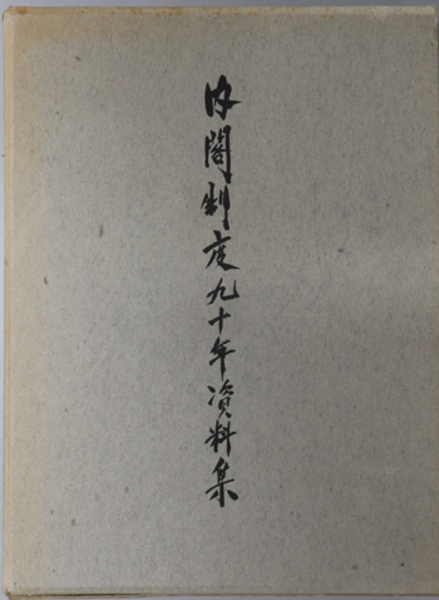 内閣制度九十年資料集